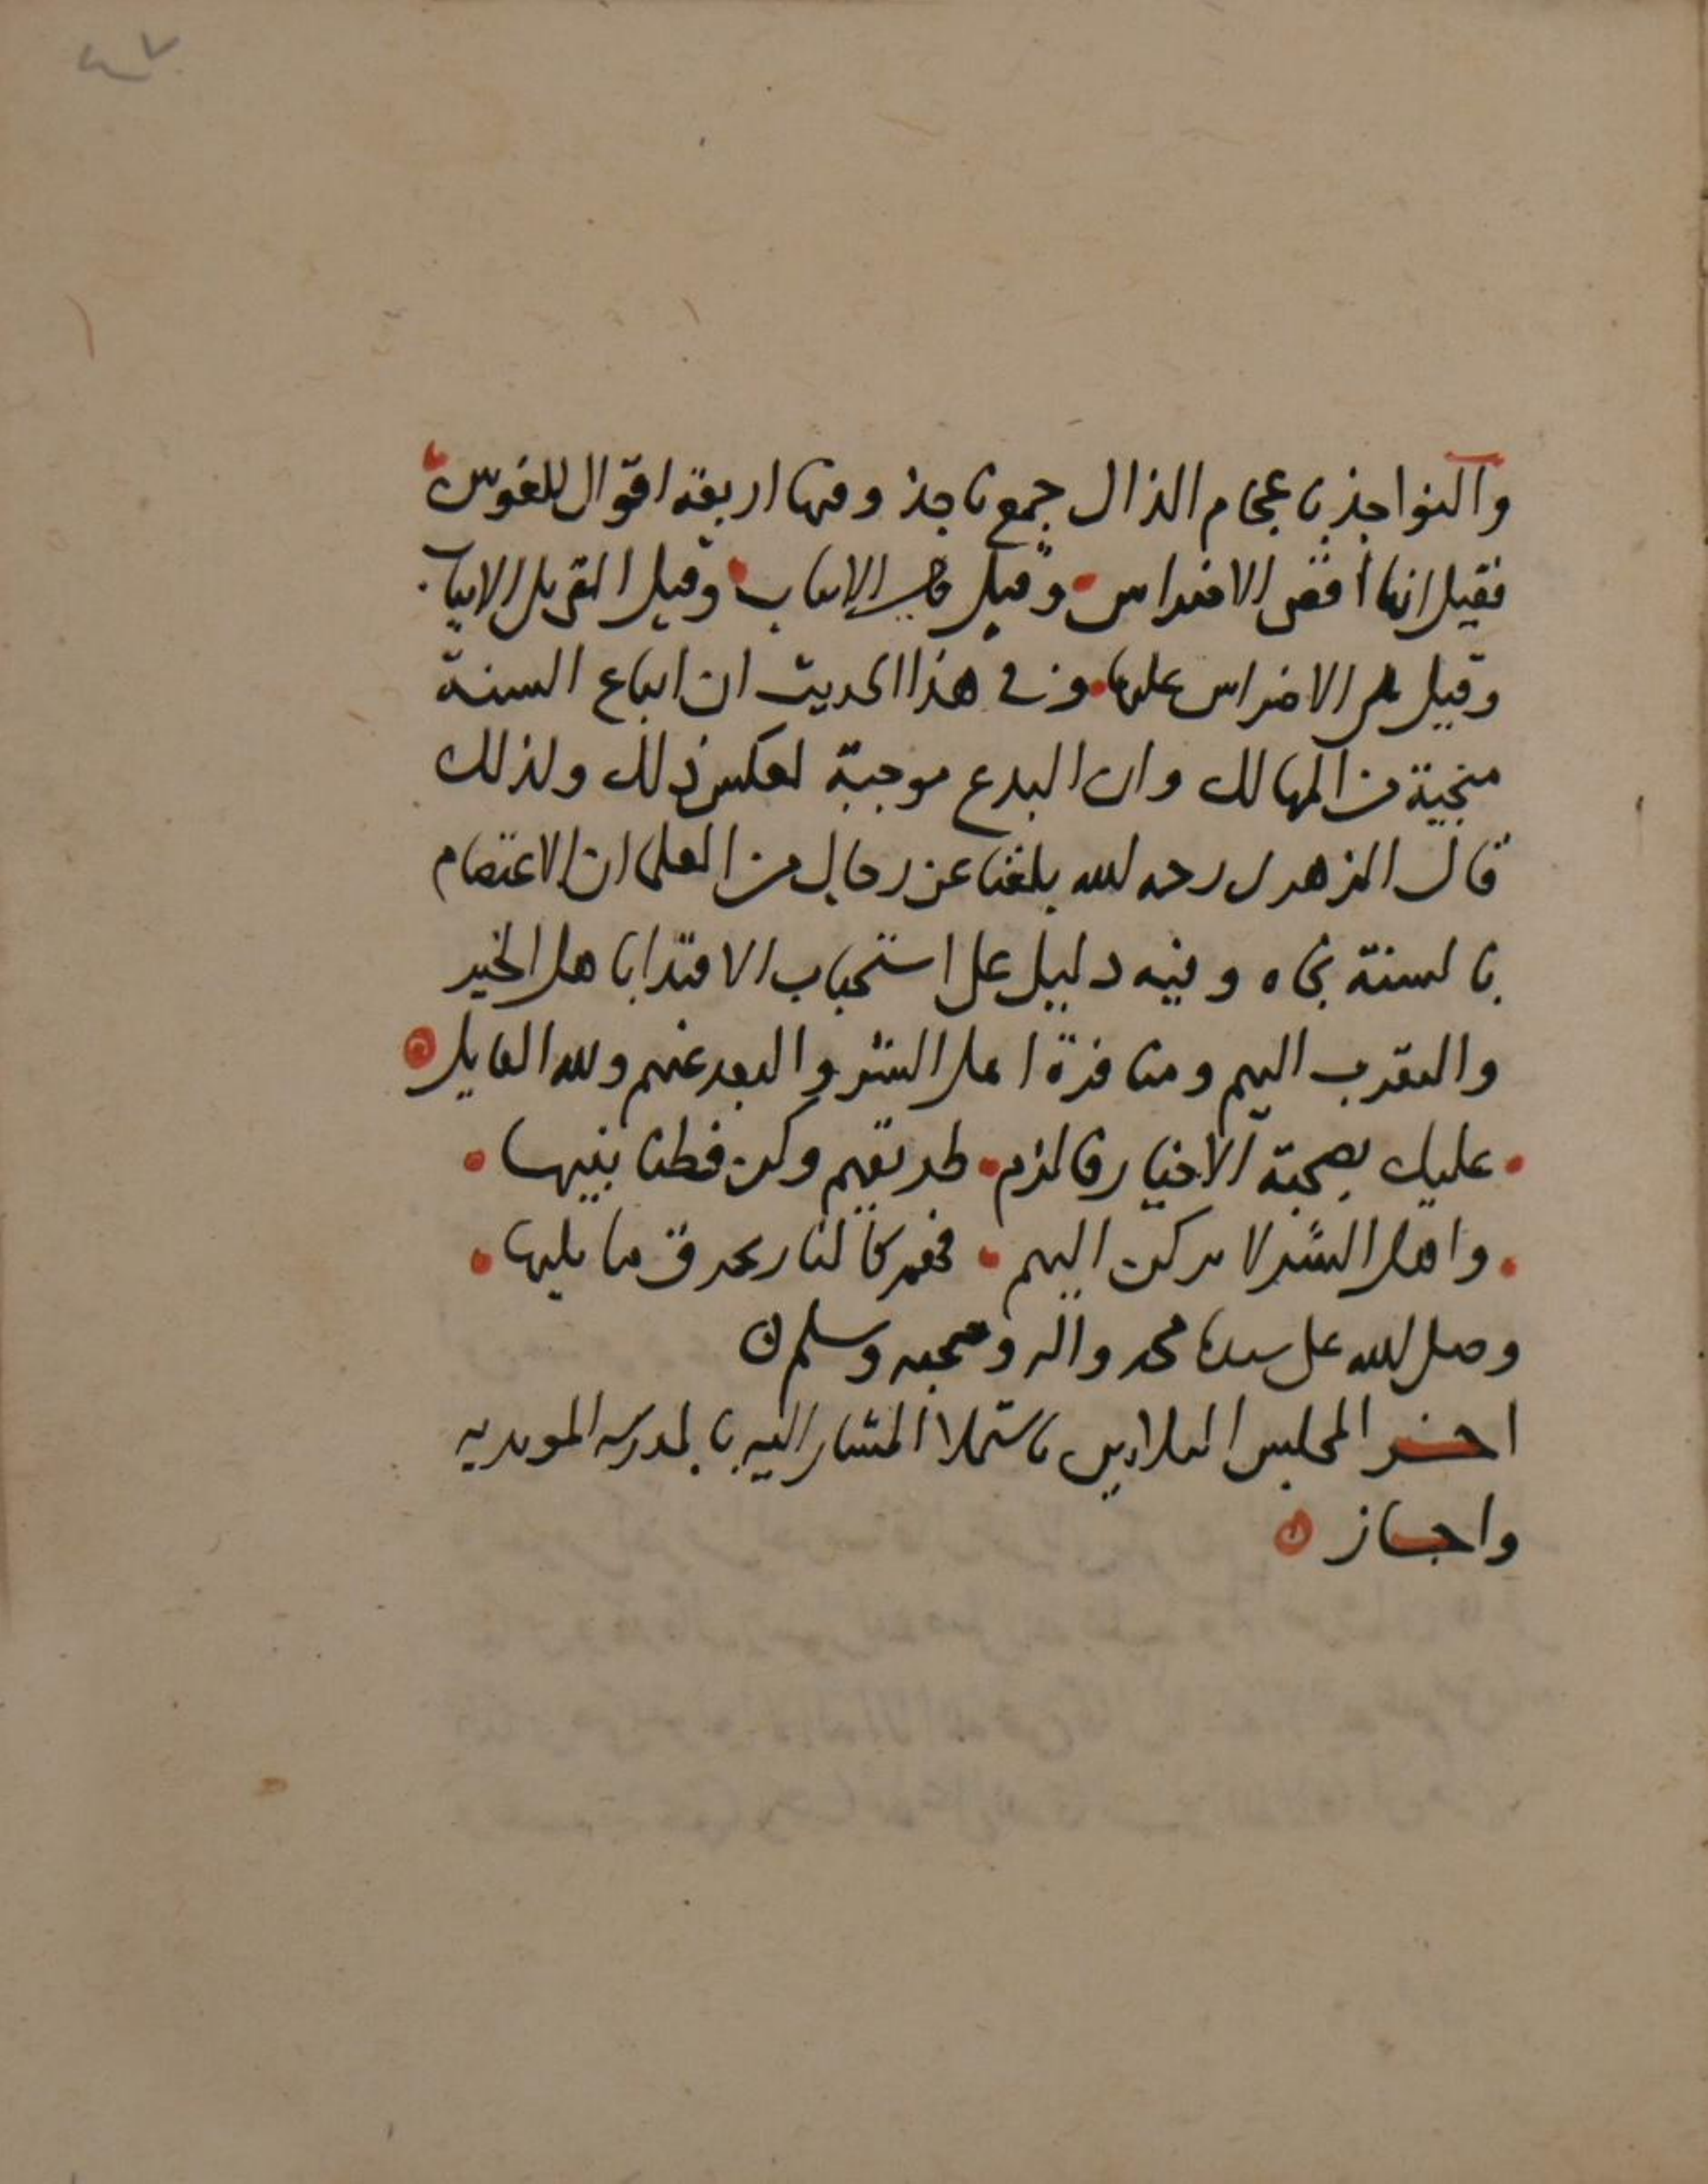 والنواجذ باعجام الذال جمع ناجذ وفيها اربعة اقوال للغويين
فقيل انها اقصى الاضراس وقيل هي الانياب وقيل التي تلي الانياب
وقيل الاضراس كلها وفي هذا الحديث ان اتباع السنة
منجية من المهالك وان البدع موجبة لعكس ذلك ولذلك
قال الزهري رحمه الله بلغنا عن رجال من العلما ان الاعتصام
بالسنة نجاه وفيه دليل على استحباب الاقتدا باهل الخير
والتقرب اليهم ومنافرة اهل الشر والبعد عنهم ولله القايل
عليك بصحبة الاخيار فالزم طريقهم وكن فطنا بنيها
واهل الشر لا تركن اليهم فهم كالنار تحرق ما يليها
وصلى الله على سيدنا محمد واله وصحبه وسلم
اخر المجلس باستملا المشار اليه بالمدرسه المويديه
واجاز